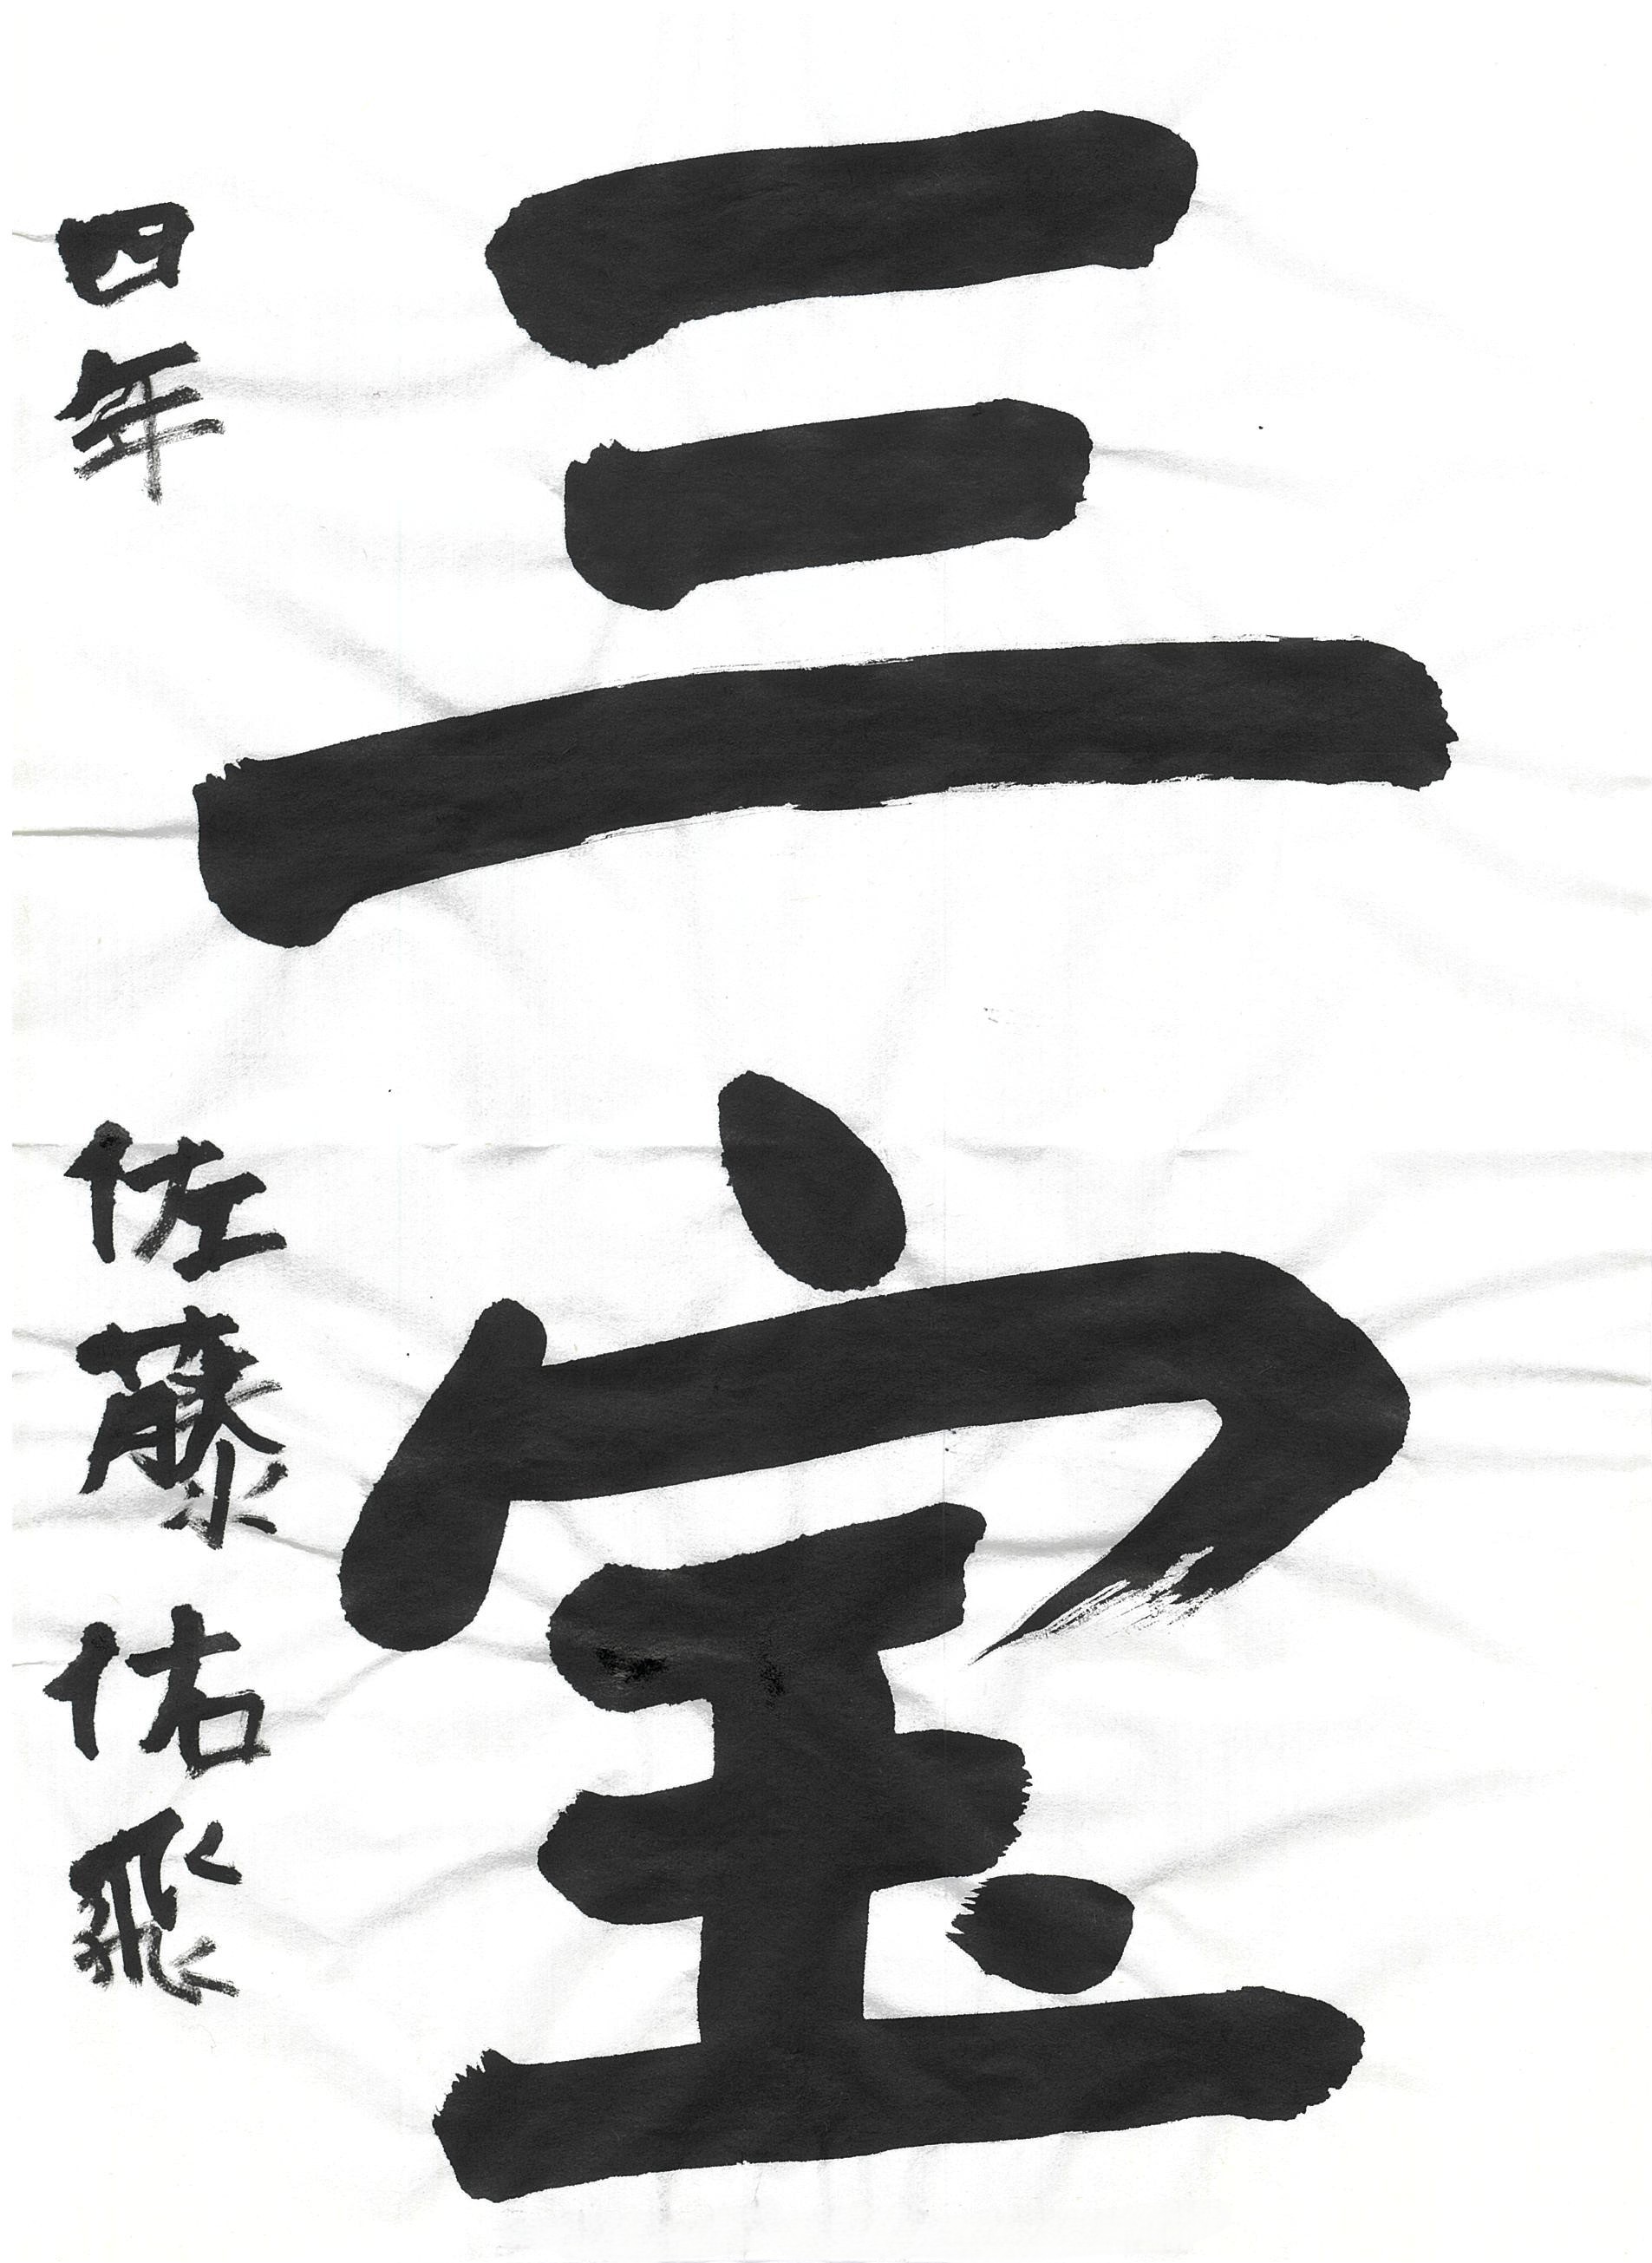 三宝
四年 佐藤佑飛